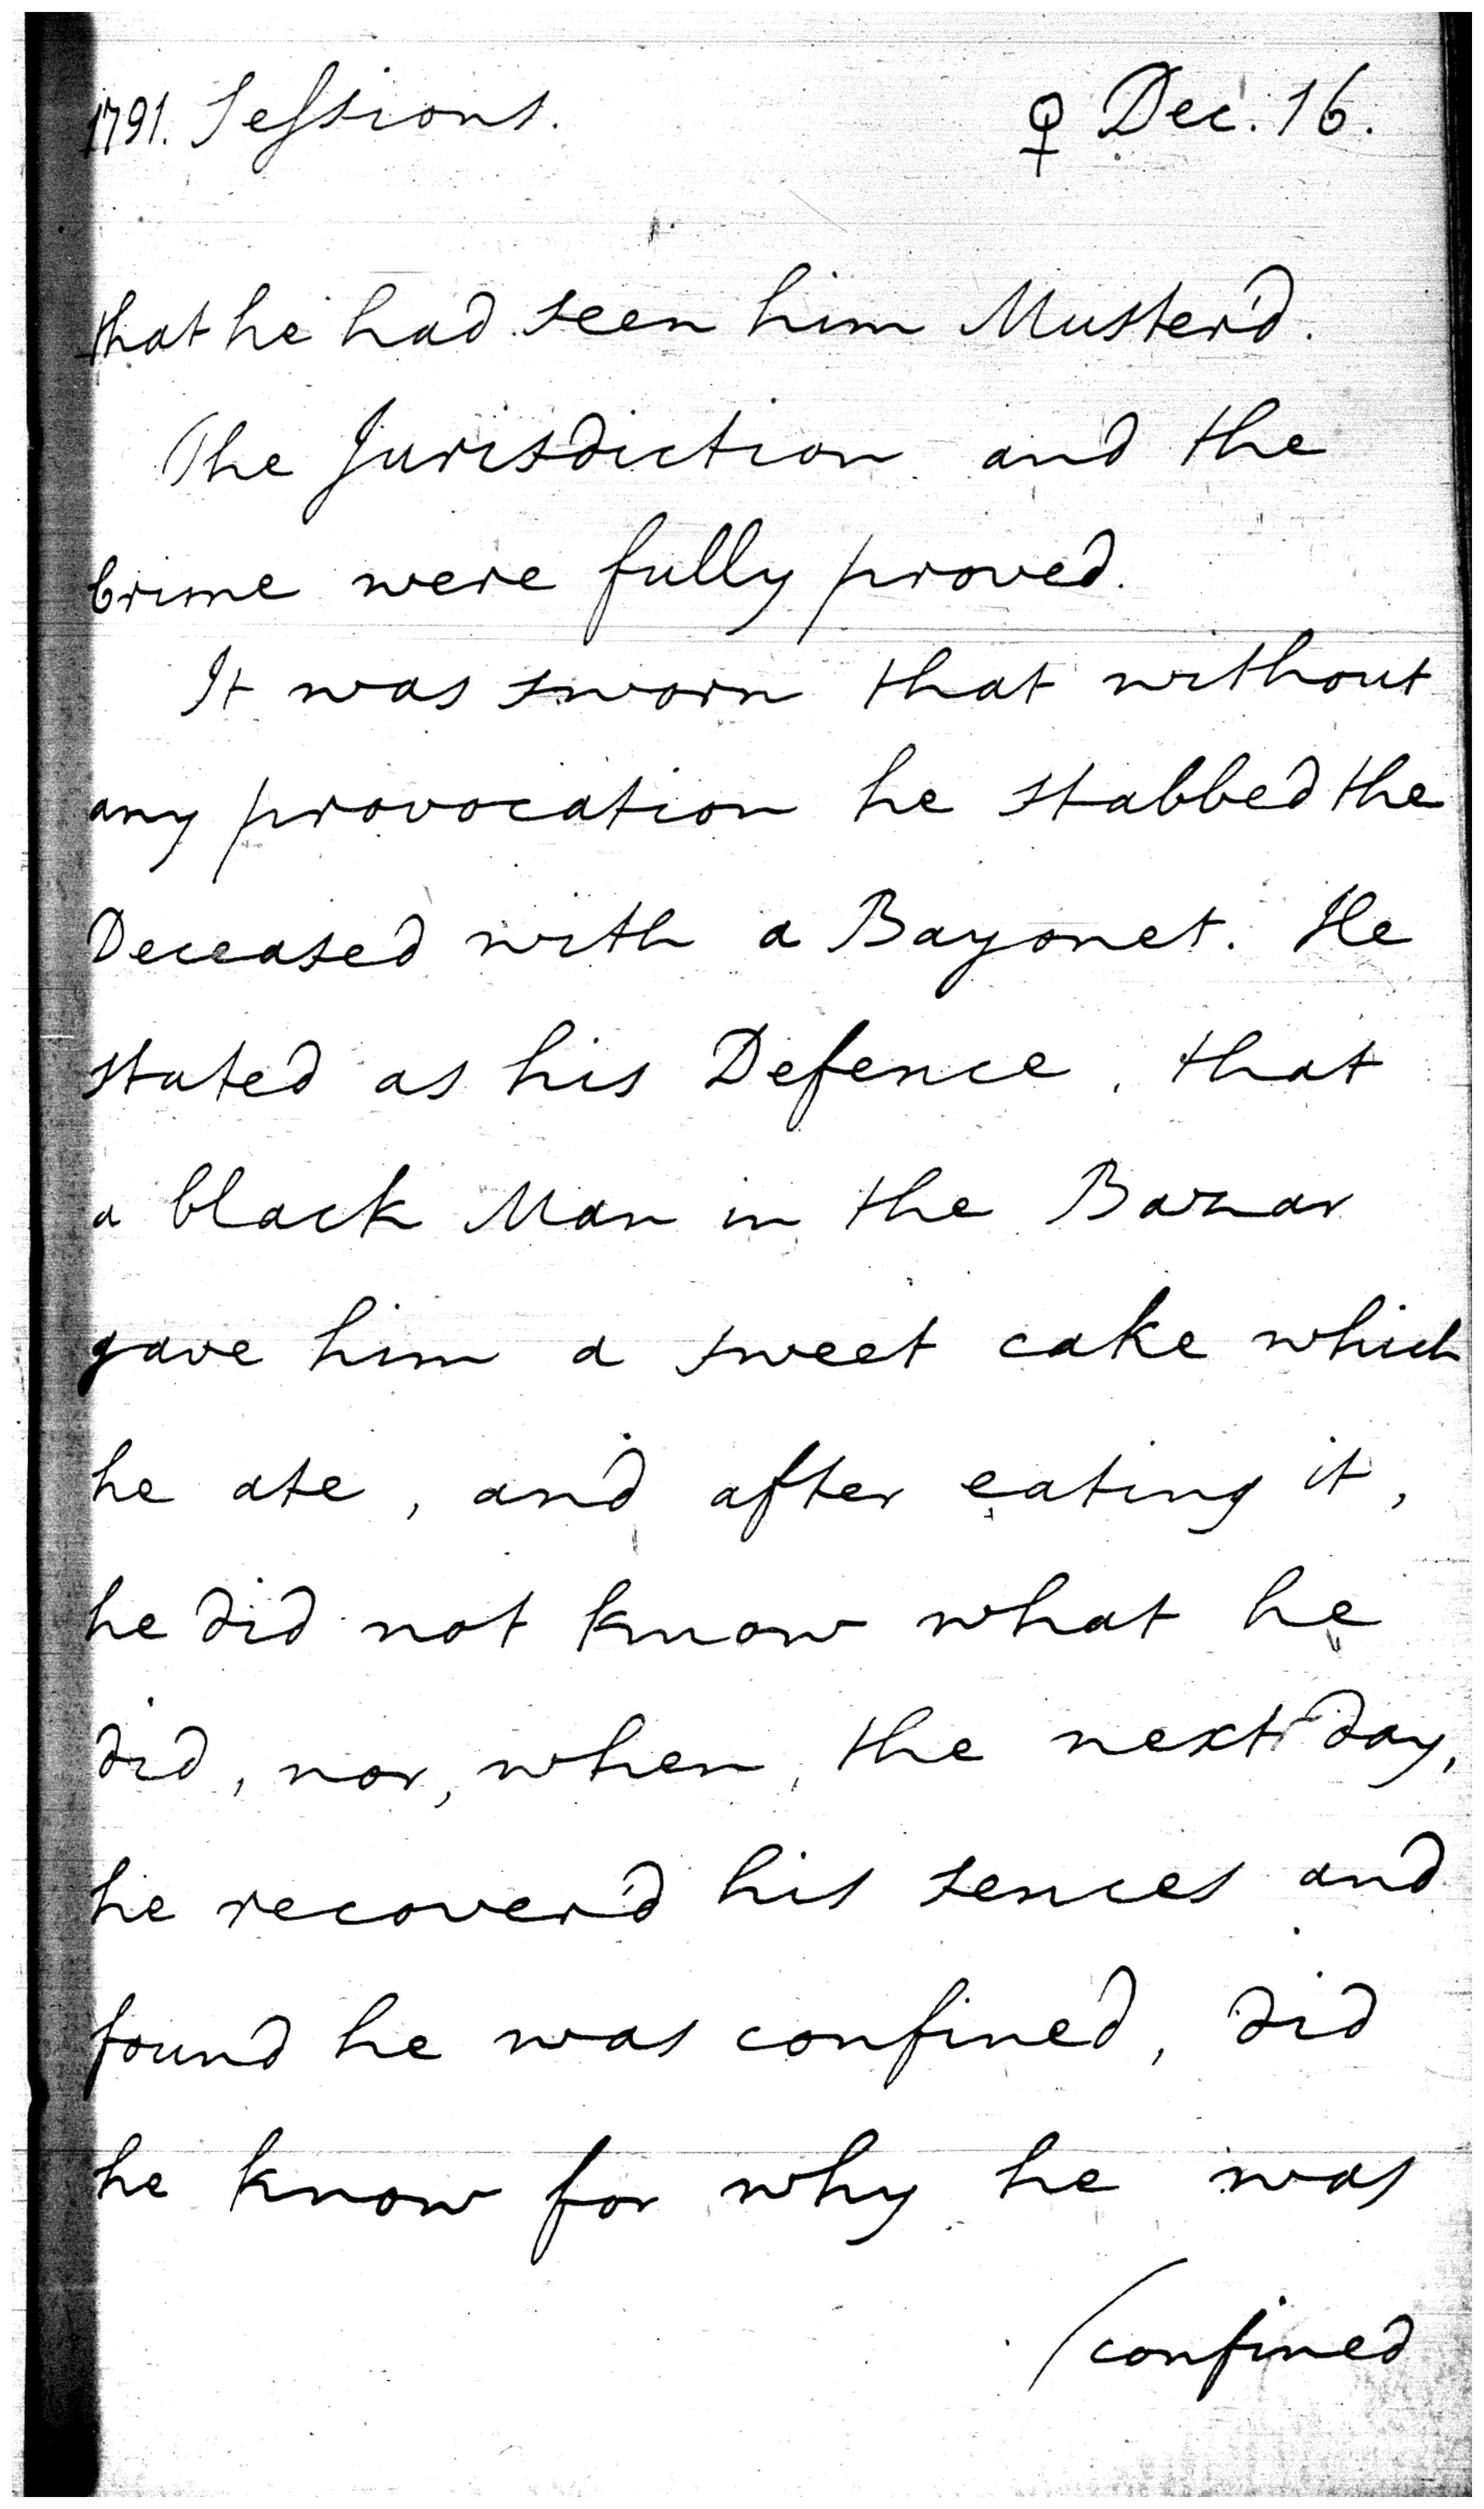 1791. Sessions. ♀ Dec. 16.
that he had seen him Muster'd.
The Jurisdiction and the
Crime were fully proved.
It was sworn that without
any provocation he stabbed the
Deceased with a Bayonet. He
stated as his Defence, that
a black Man in the Bazar
gave him a sweet cake which
he ate, and after eating it,
he did not know what he
did, nor, when, the next day,
he recover'd his sences and
found he was confined, did
he know for why he was
(confined